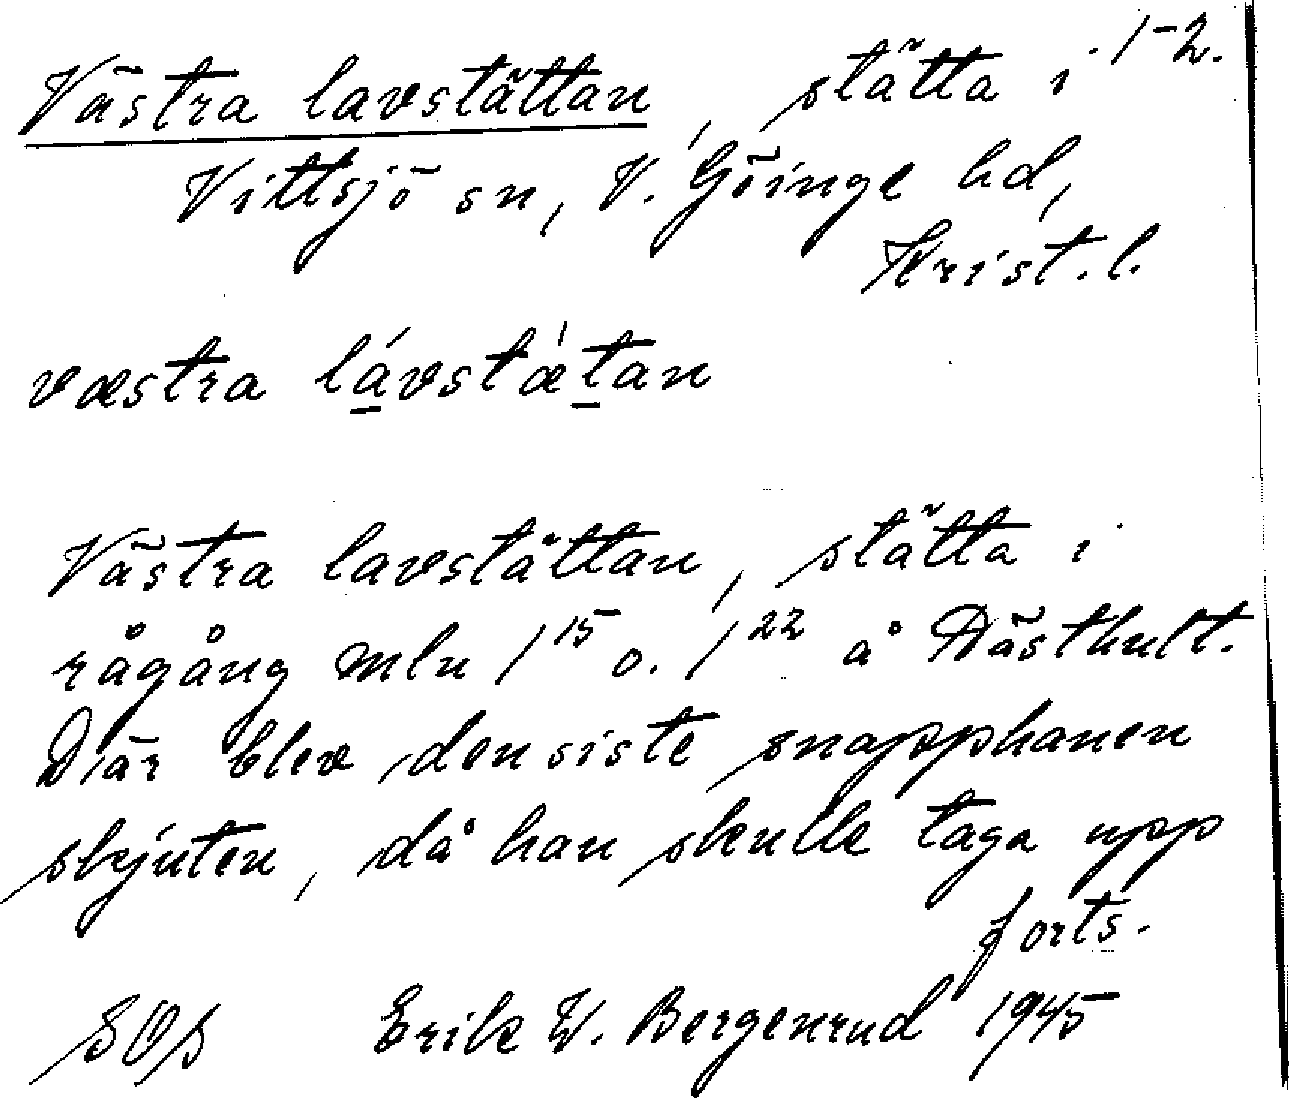 Västra lavstättan, stätta i 1-2.
Vittsjö sn, V. Göinge hd,
Krist. l.
væstra lávstǽtan
Västra lavstättan, stätta i
rågång mln 1¹⁵ o. 1²² å Dästhult.
Där blev den siste snapphanen
skjuten, då han skulle taga upp
forts.
SOS Erik W. Bergenrud 1945